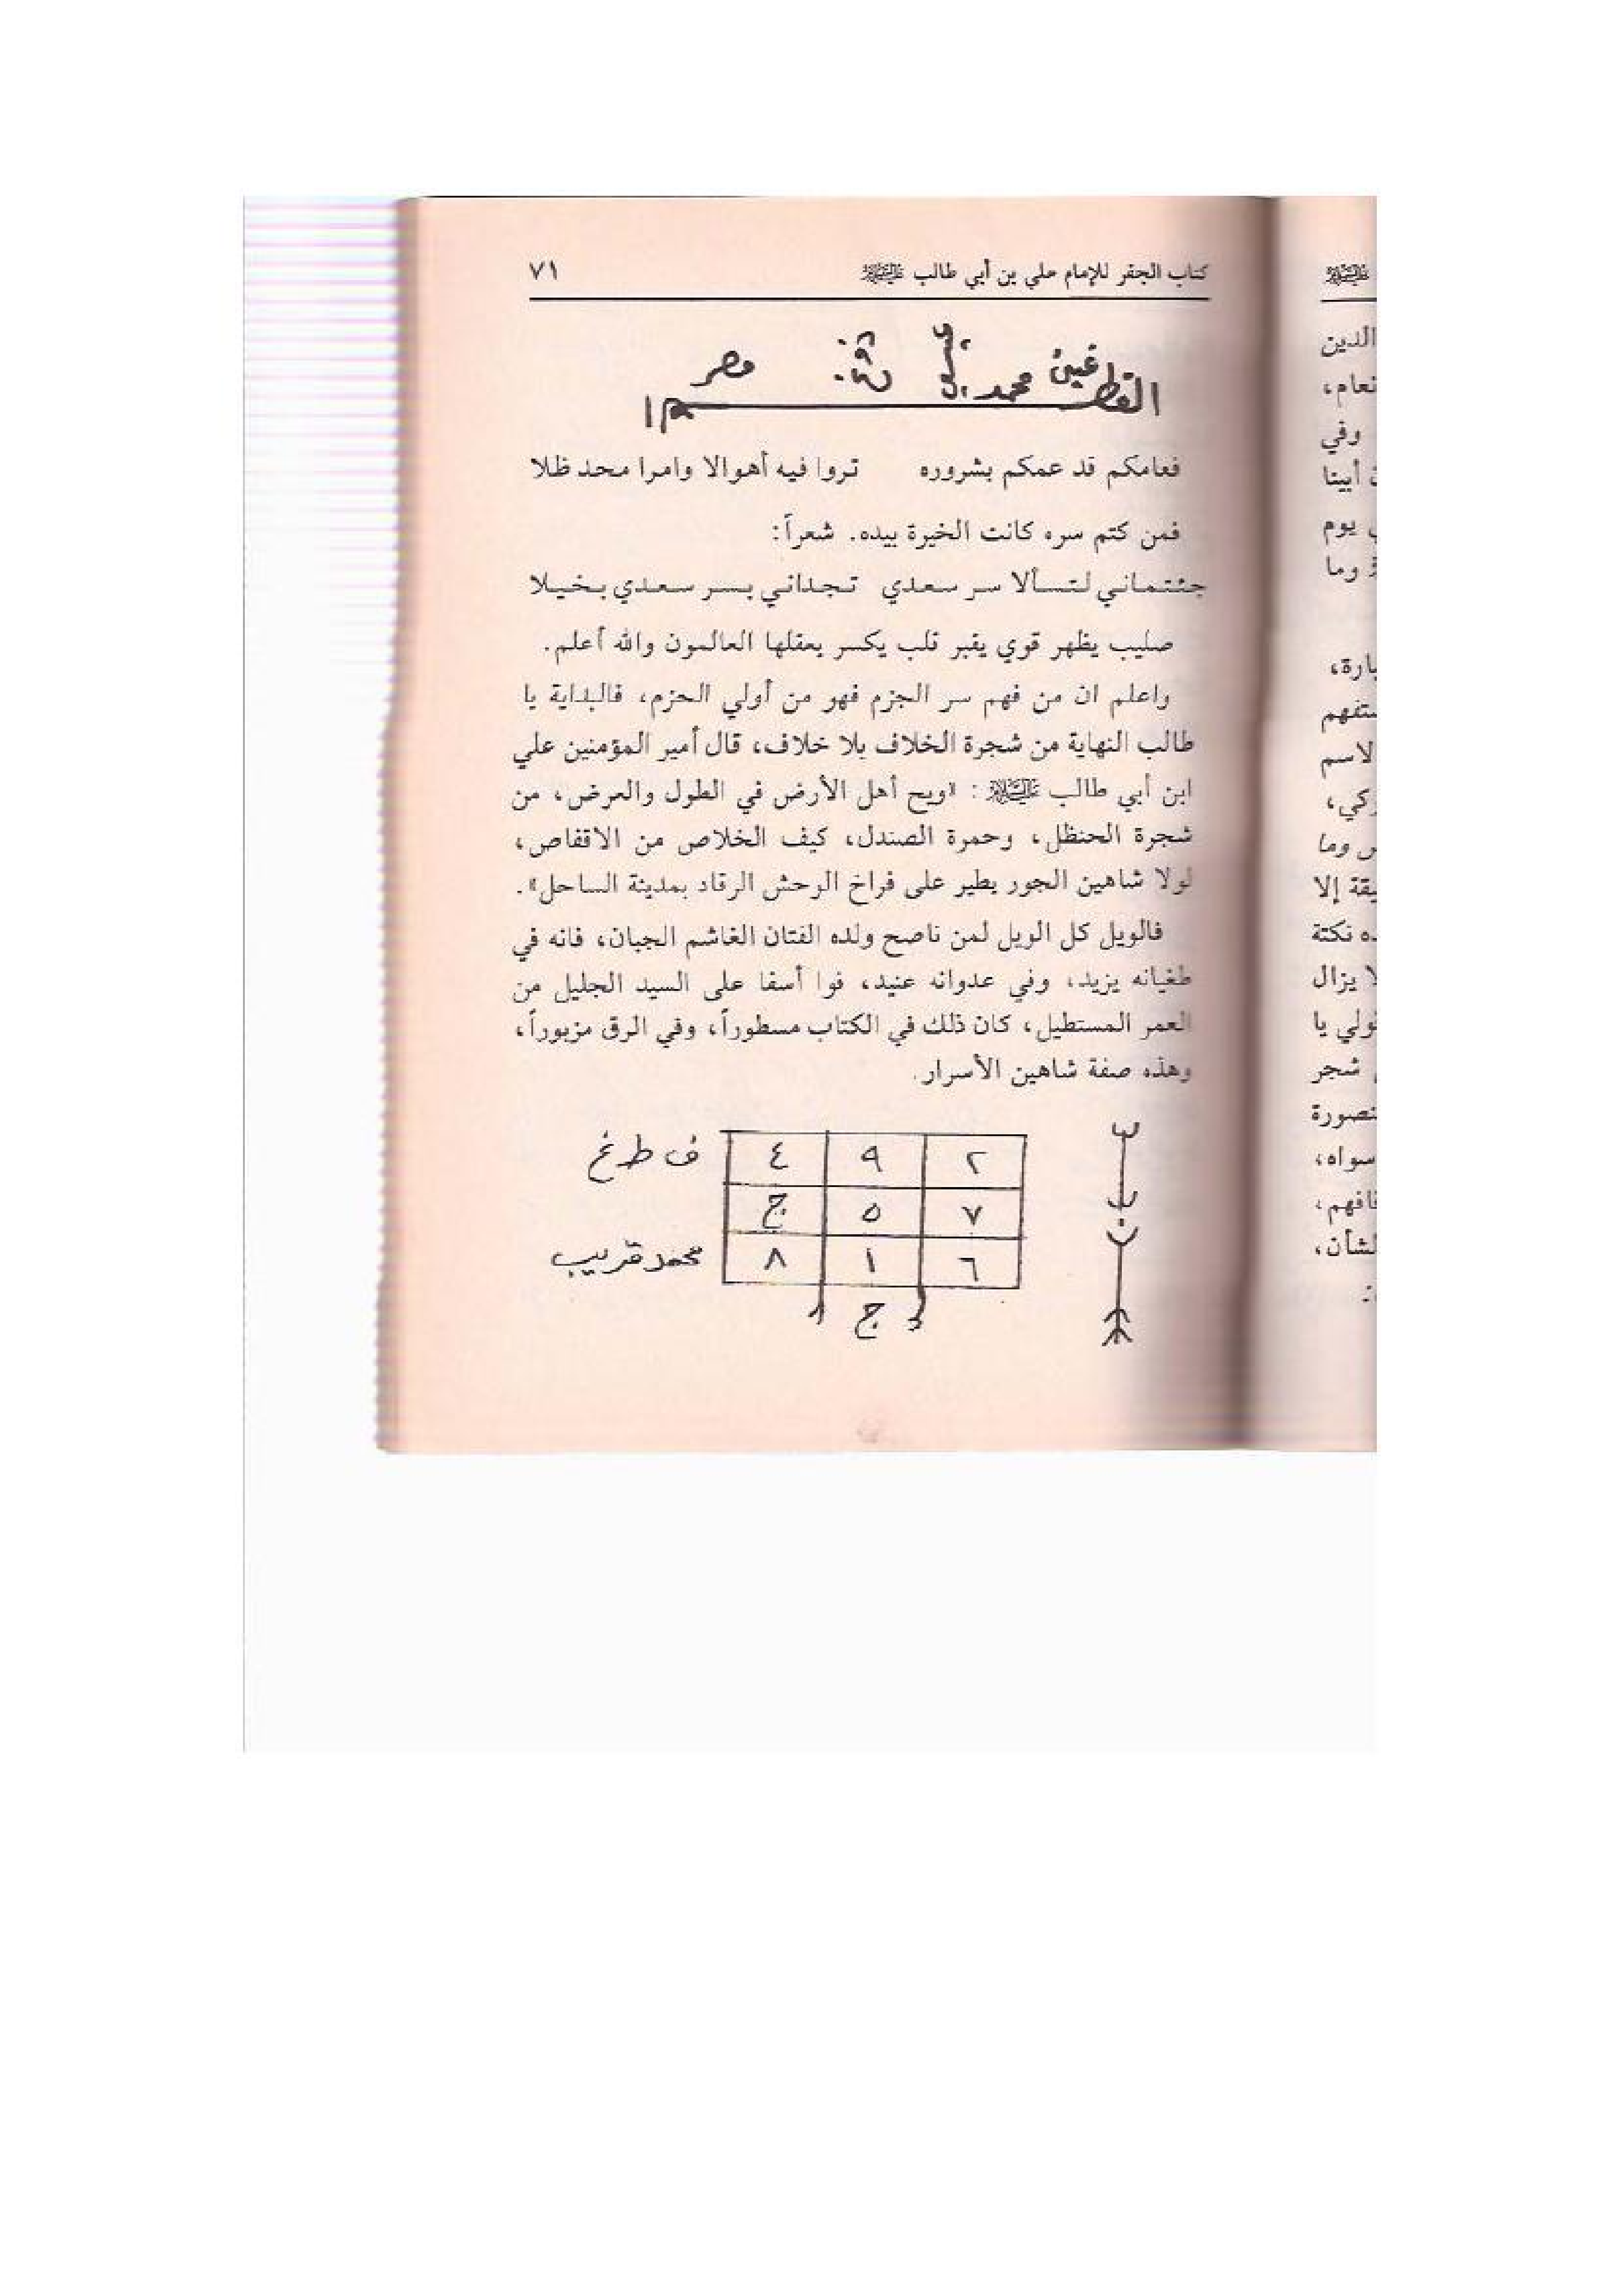 كتاب الجفر للإمام علي بن أبي طالب عليه السلام ٧١
محمد مصر
فعامكم قد عمكم بشروره تروا فيه أهوالا وامرا محد ظلا
فمن كتم سره كانت الخيرة بيده. شعراً:
جئتماني لتسألا سر سعدي تجداني بسر سعدي بخيلا
صليب يظهر قوي يقبر قلب يكسر يعقلها العالمون والله أعلم.
واعلم ان من فهم سر الجزم فهو من أولي الحزم، فالبداية يا
طالب النهاية من شجرة الخلاف بلا خلاف، قال أمير المؤمنين علي
ابن أبي طالب عليه السلام: «ويح أهل الأرض في الطول والعرض، من
شجرة الحنظل، وحمرة الصندل، كيف الخلاص من الاقفاص،
لولا شاهين الجور يطير على فراخ الوحش الرقاد بمدينة الساحل».
فالويل كل الويل لمن ناصح ولده الفتان الغاشم الجبان، فانه في
طغيانه يزيد، وفي عدوانه عنيد، فوا أسفا على السيد الجليل من
العمر المستطيل، كان ذلك في الكتاب مسطوراً، وفي الرق مزبوراً،
وهذه صفة شاهين الأسرار.
٢ ٩ ٤ ف ط غ
٧ ٥ ج
٦ ١ ٨ محمد قريب
ج
عليه السلام
الذين
وفي
يوم
وما